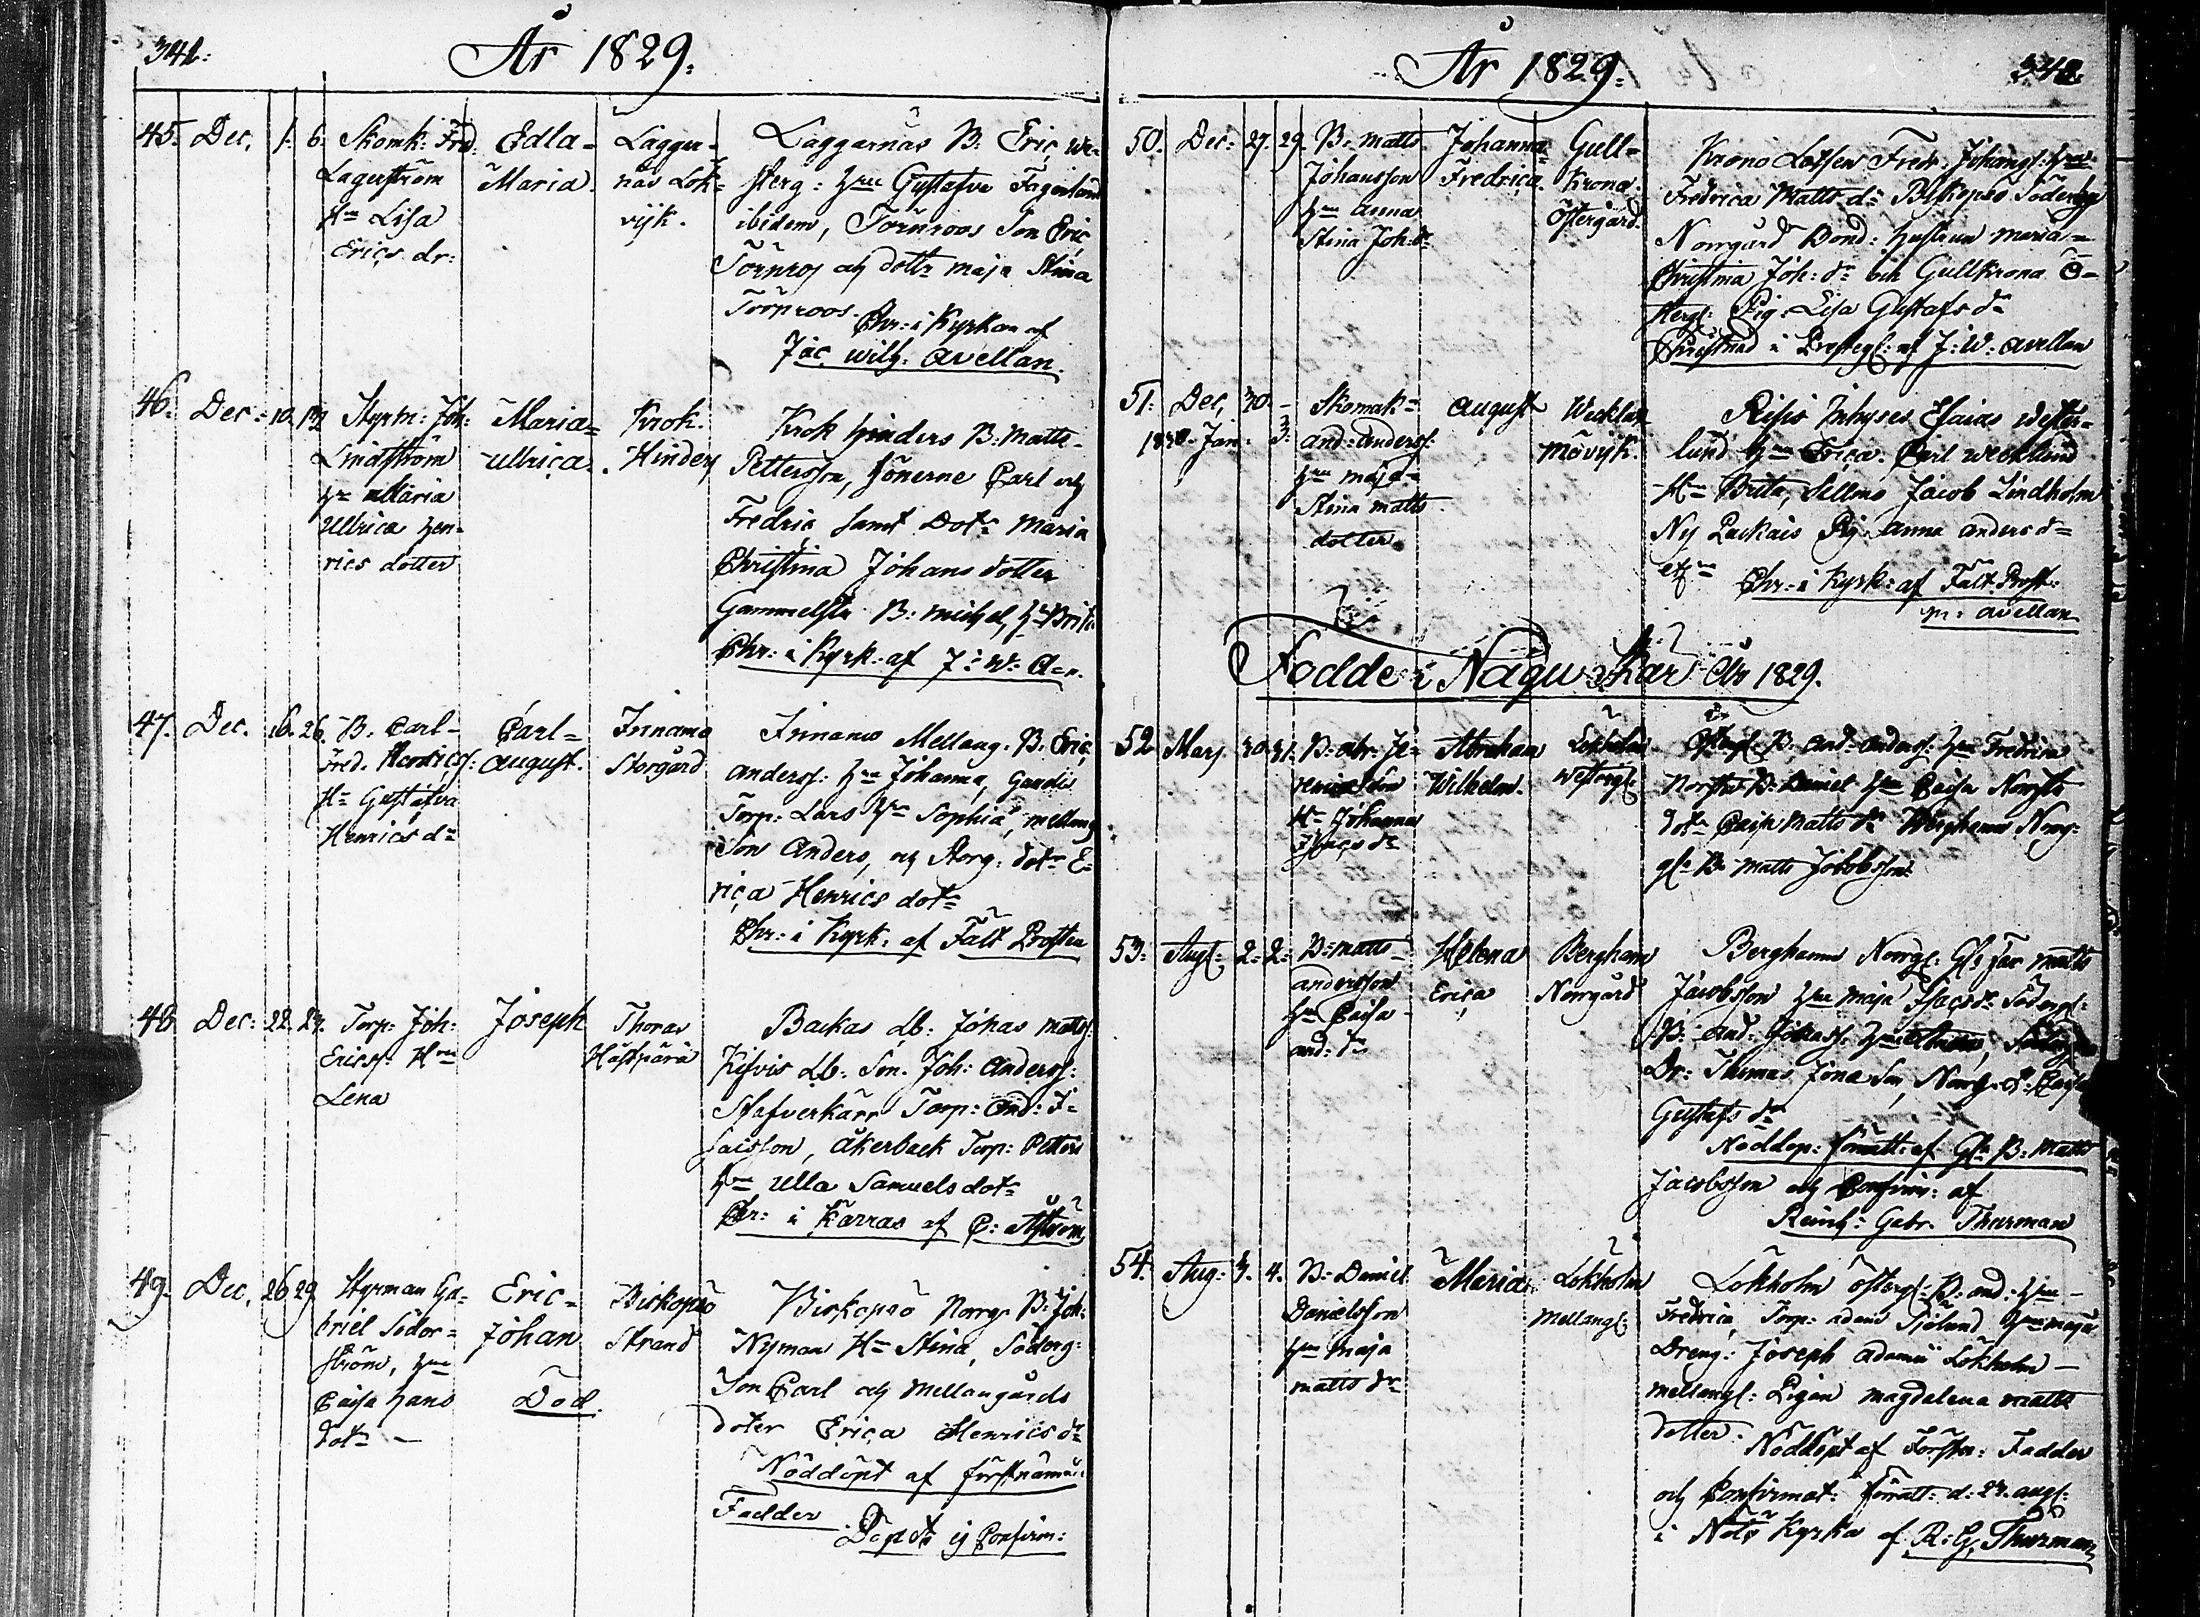 342.
År 1829.
45. Dec. 1. 6. Skomk: Fred. Lagerström Hu Lisa Erics dr:
Edla Maria.
Laggarnäs Lökvijk.
Laggarnäs B. Eric
Hru Gustafva Fagerlund
ibidem, Törnroos Son Eric
Törnros och dottr Maja Stina
Törnroos. Chr: i Kyrkan af
Jac. Wilh: Avellan.
46. Dec. 10. 13. Styrm: Joh: Lindström Hu Maria Ulbrica Henrics dotter
Maria Ulbrica.
Krok Hinders
Krok Hinders B: Matts
Pettersson, Sönerne Carl och
Fredric samt Dotr Maria
Christina Johans dotter
Gammelsta B: Michel, Hu Brita
Chr: i Kyrk: af J: W: A-n.
47. Dec. 16. 26. B. Carl Fred. Henricss: Hu Gustafva Henrics dr
Carl August.
Innamo Storgård
Innamo Mellang. B. Eric
Anderss: Hru Johanna,
Torp: Lars Hru Sophia, Mellang
Son Anders, och Storg: dotr E-
rica Henrics dotr
Chr: i Kyrk: af Fält Prosten
48. Dec: 22. 27. Torp: Joh: Ericss: Hru Lena
Joseph
Thoras Hästspärrä
Backas Lb: Johas Matss:
Kifvis Lb: Son Joh: Anderss:
Stafverkärr Torp: And: I-
sacsson, Åkerback Torp: Petters
Hru Ulla Samuels dotr
Chr: i Karras af C: Åström
49. Dec. 26. 29 Styrman Gabriel Söderström, Hru Caisa Hans dotr
Eric Johan
Död.
Biskopsö Strand
Biskopsö Norrg: B: Joh:
Nyman Hu Stina, Söderg:
Son Carl och Mellangårds
doter Erica Henrics dr
Nöddöpt af förstnämnde
Fadder. Döpdt ej Confirm:
År 1829.
343.
50. Dec: 27. 29. B. Matts Johansson Hru Anna Stina Joh: dr
Johanna Fredrica.
Gullkrona Östergård.
Krono Lotsen Fredr: Johanss: Hru
Fredrica Matts dr Biskopsö Söderby
Norrgård Bond: Hustrun Maria
Christina Joh: dr och Gullkrona Ö-
sterg: Pig: Lisa Gustafs dr
Christnad i Prestg: af J: W: Avellan
51. Dec, 30. 1830. Jan. 3. Skomak: And: Anderss: Hru Maja Stina Matts dotter.
August
Wecklax Måvijk.
Risis Inhyses Esaias Wester-
lund Hru Erica. Carl Wecklund
Hu Brita, Sellmo Jacob Lindholm
Ny Packais Pig: Anna Anders dr
Chr: i Kyrk: af Fält Prost:
M: Avellan
Födde i Nagu Skär År 1829.
52. Mars 30. 31. B. Abr. Hu Johanna Isacs dr
Abraham Wilhelm.
Lökholm Westergl:
Österg: B. And: Anderss: Hru Fredrica
B. Daniel Hru Caisa
dotr Caisa Matts dr Berghamn Norr-
g: B Matts Jakobsson
53: Aug: 2. 2. B: Matts Andersson Hu Caisa And: dr
Helena Erica
Berghamn Norrgård
Berghamn Norrg: Matts
Jacobsson Hru Maja Isacs dr Söderg:
B: And: Johass: Hru
Dr: Thomas Jonasson, Norrg: Caisa
Gustafs dr
Nöddop: förrätt: af B: Matts
Jacobsson och Confirm: af
Reinh: Gabr. Thurman
54. Aug: 3. 4. B: Daniel Danielsson Hru Maja Matts dr
Maria
Lökholm Mellang:
Lökholm Österg: B. And: Hru
Fredrica, Torp: Adam Sjölund Hru Maja
Dreng: Joseph Adamss Lökholm
Mellang: Pigan Magdalena Matts
dotter. Nöddöpt af Förstn: Fadder
och Confirmat: förrätt: d: 23. Aug:
i Nötö Kyrka af R: G: Thurman